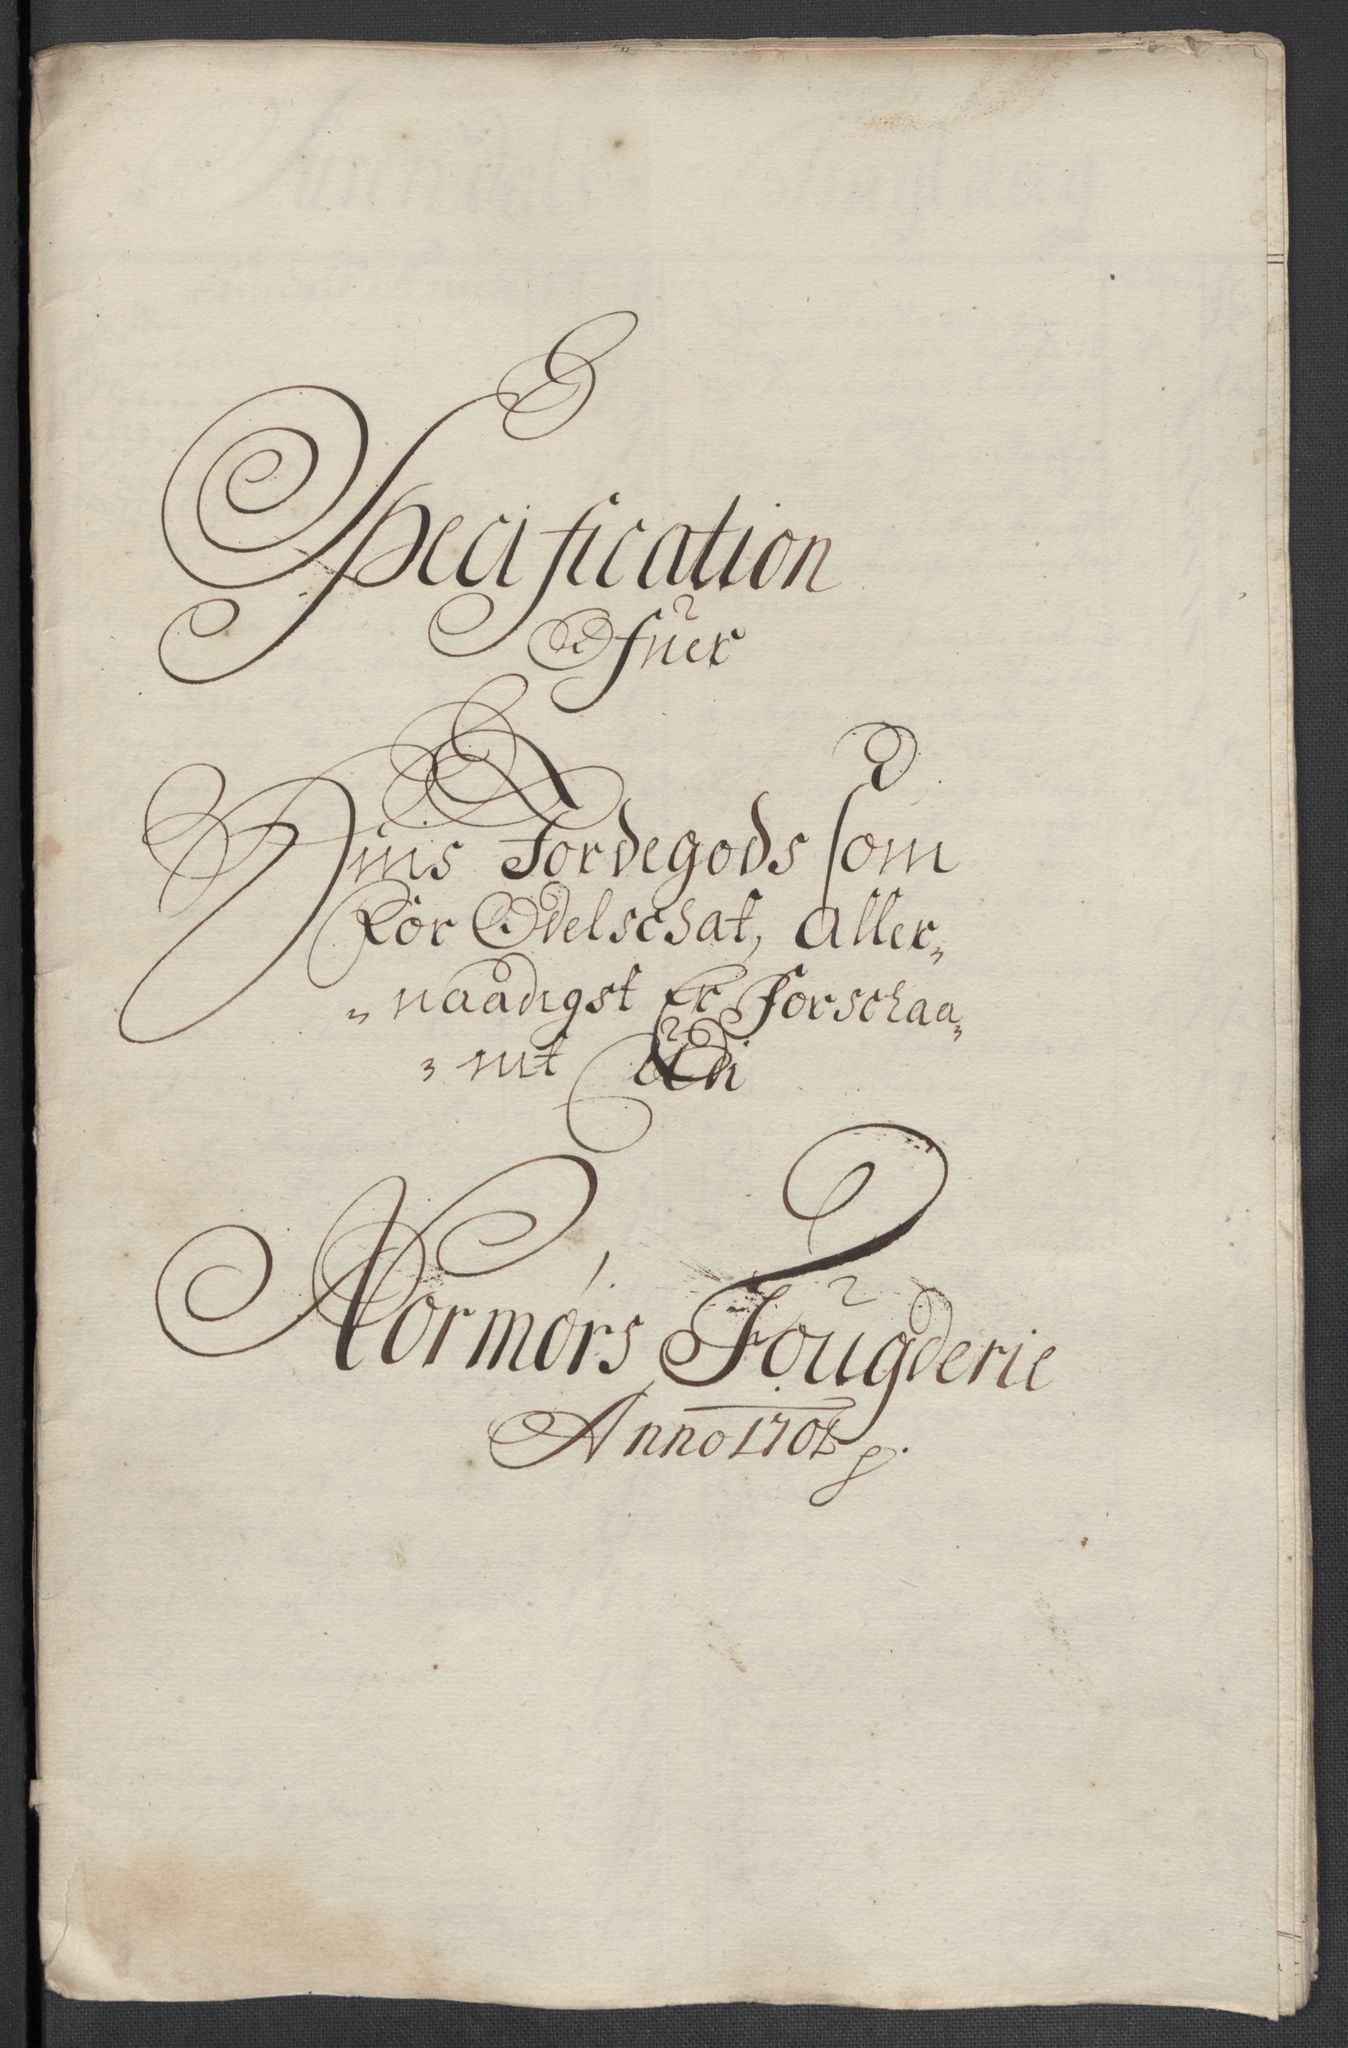 Specification
Ofuer
Huis Jordegods som
For Odelschat, aller„
„naadigst Er Forschaa„
„nit Udi
Normørs Fougderie
Anno 1701